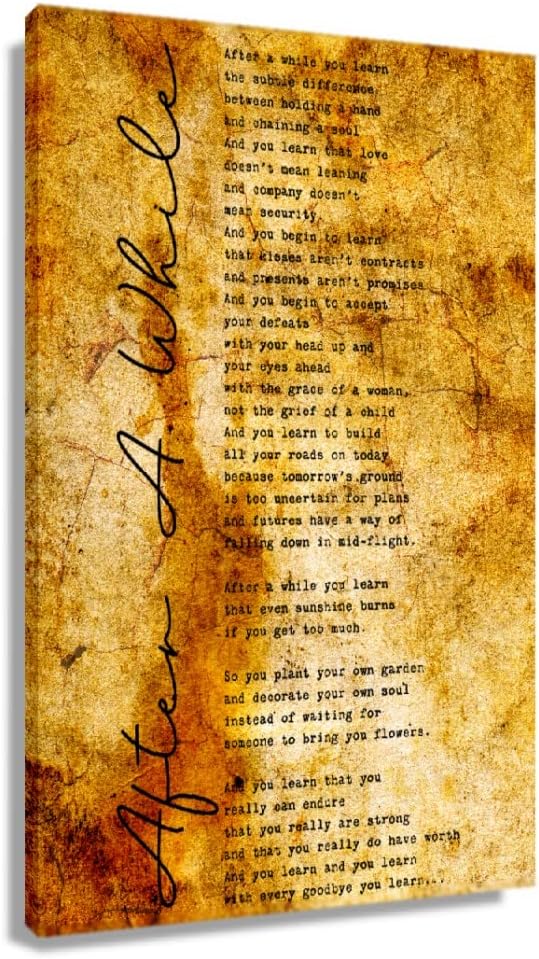 After A While
After a while you learn
the subtle difference
between holding a hand
and chaining a soul
And you learn that love
doesn't mean leaning
and company doesn't
mean security.
And you begin to learn
that kisses aren't contracts
and presents aren't promises
And you begin to accept
your defeats
with your head up and
your eyes ahead
with the grace of a woman,
not the grief of a child
And you learn to build
all your roads on today
because tomorrow's ground
is too uncertain for plans
and futures have a way of
falling down in mid-flight.
After a while you learn
that even sunshine burns
if you get too much.
So you plant your own garden
and decorate your own soul
instead of waiting for
someone to bring you flowers.
And you learn that you
really can endure
that you really are strong
and that you really do have worth
And you learn and you learn
with every goodbye you learn...